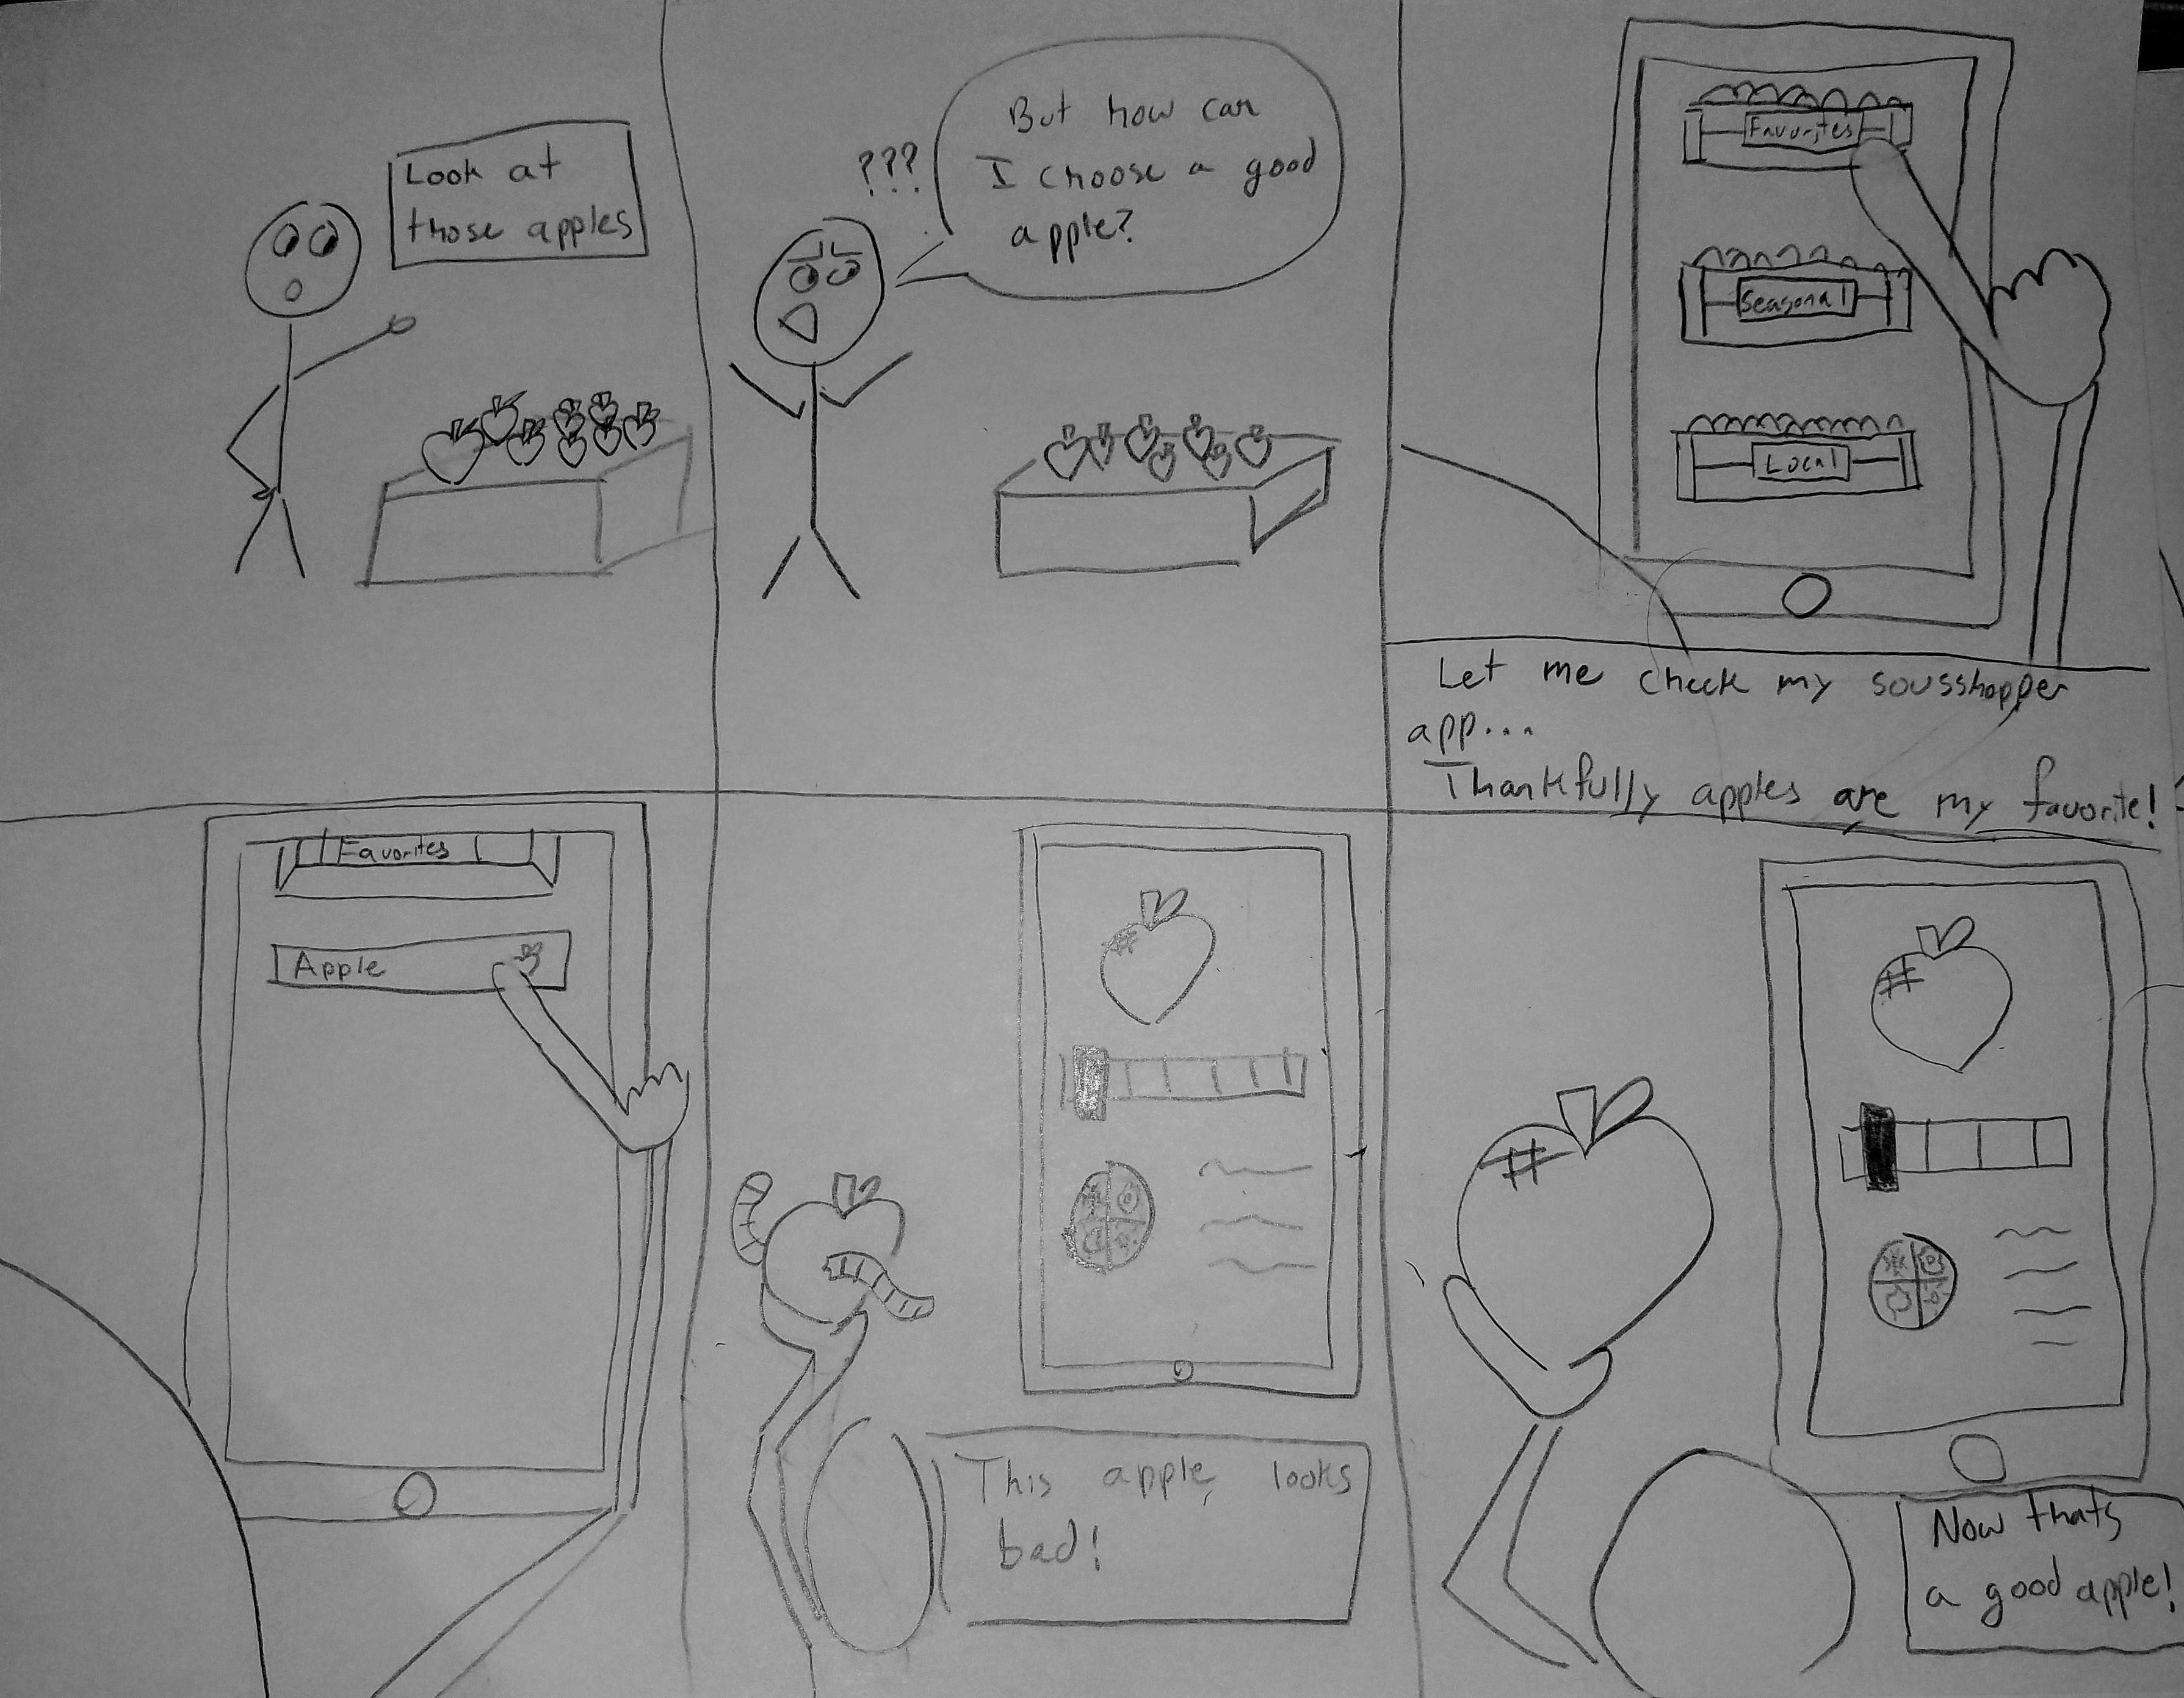 Look at
those apples
???
But how can
I choose a good
apple?
Favorites
Seasonal
Local
Let me check my sousshopper
app...
Thankfully apples are my favorite!
Favorites
Apple
This apple looks
bad!
Now thats
a good apple!